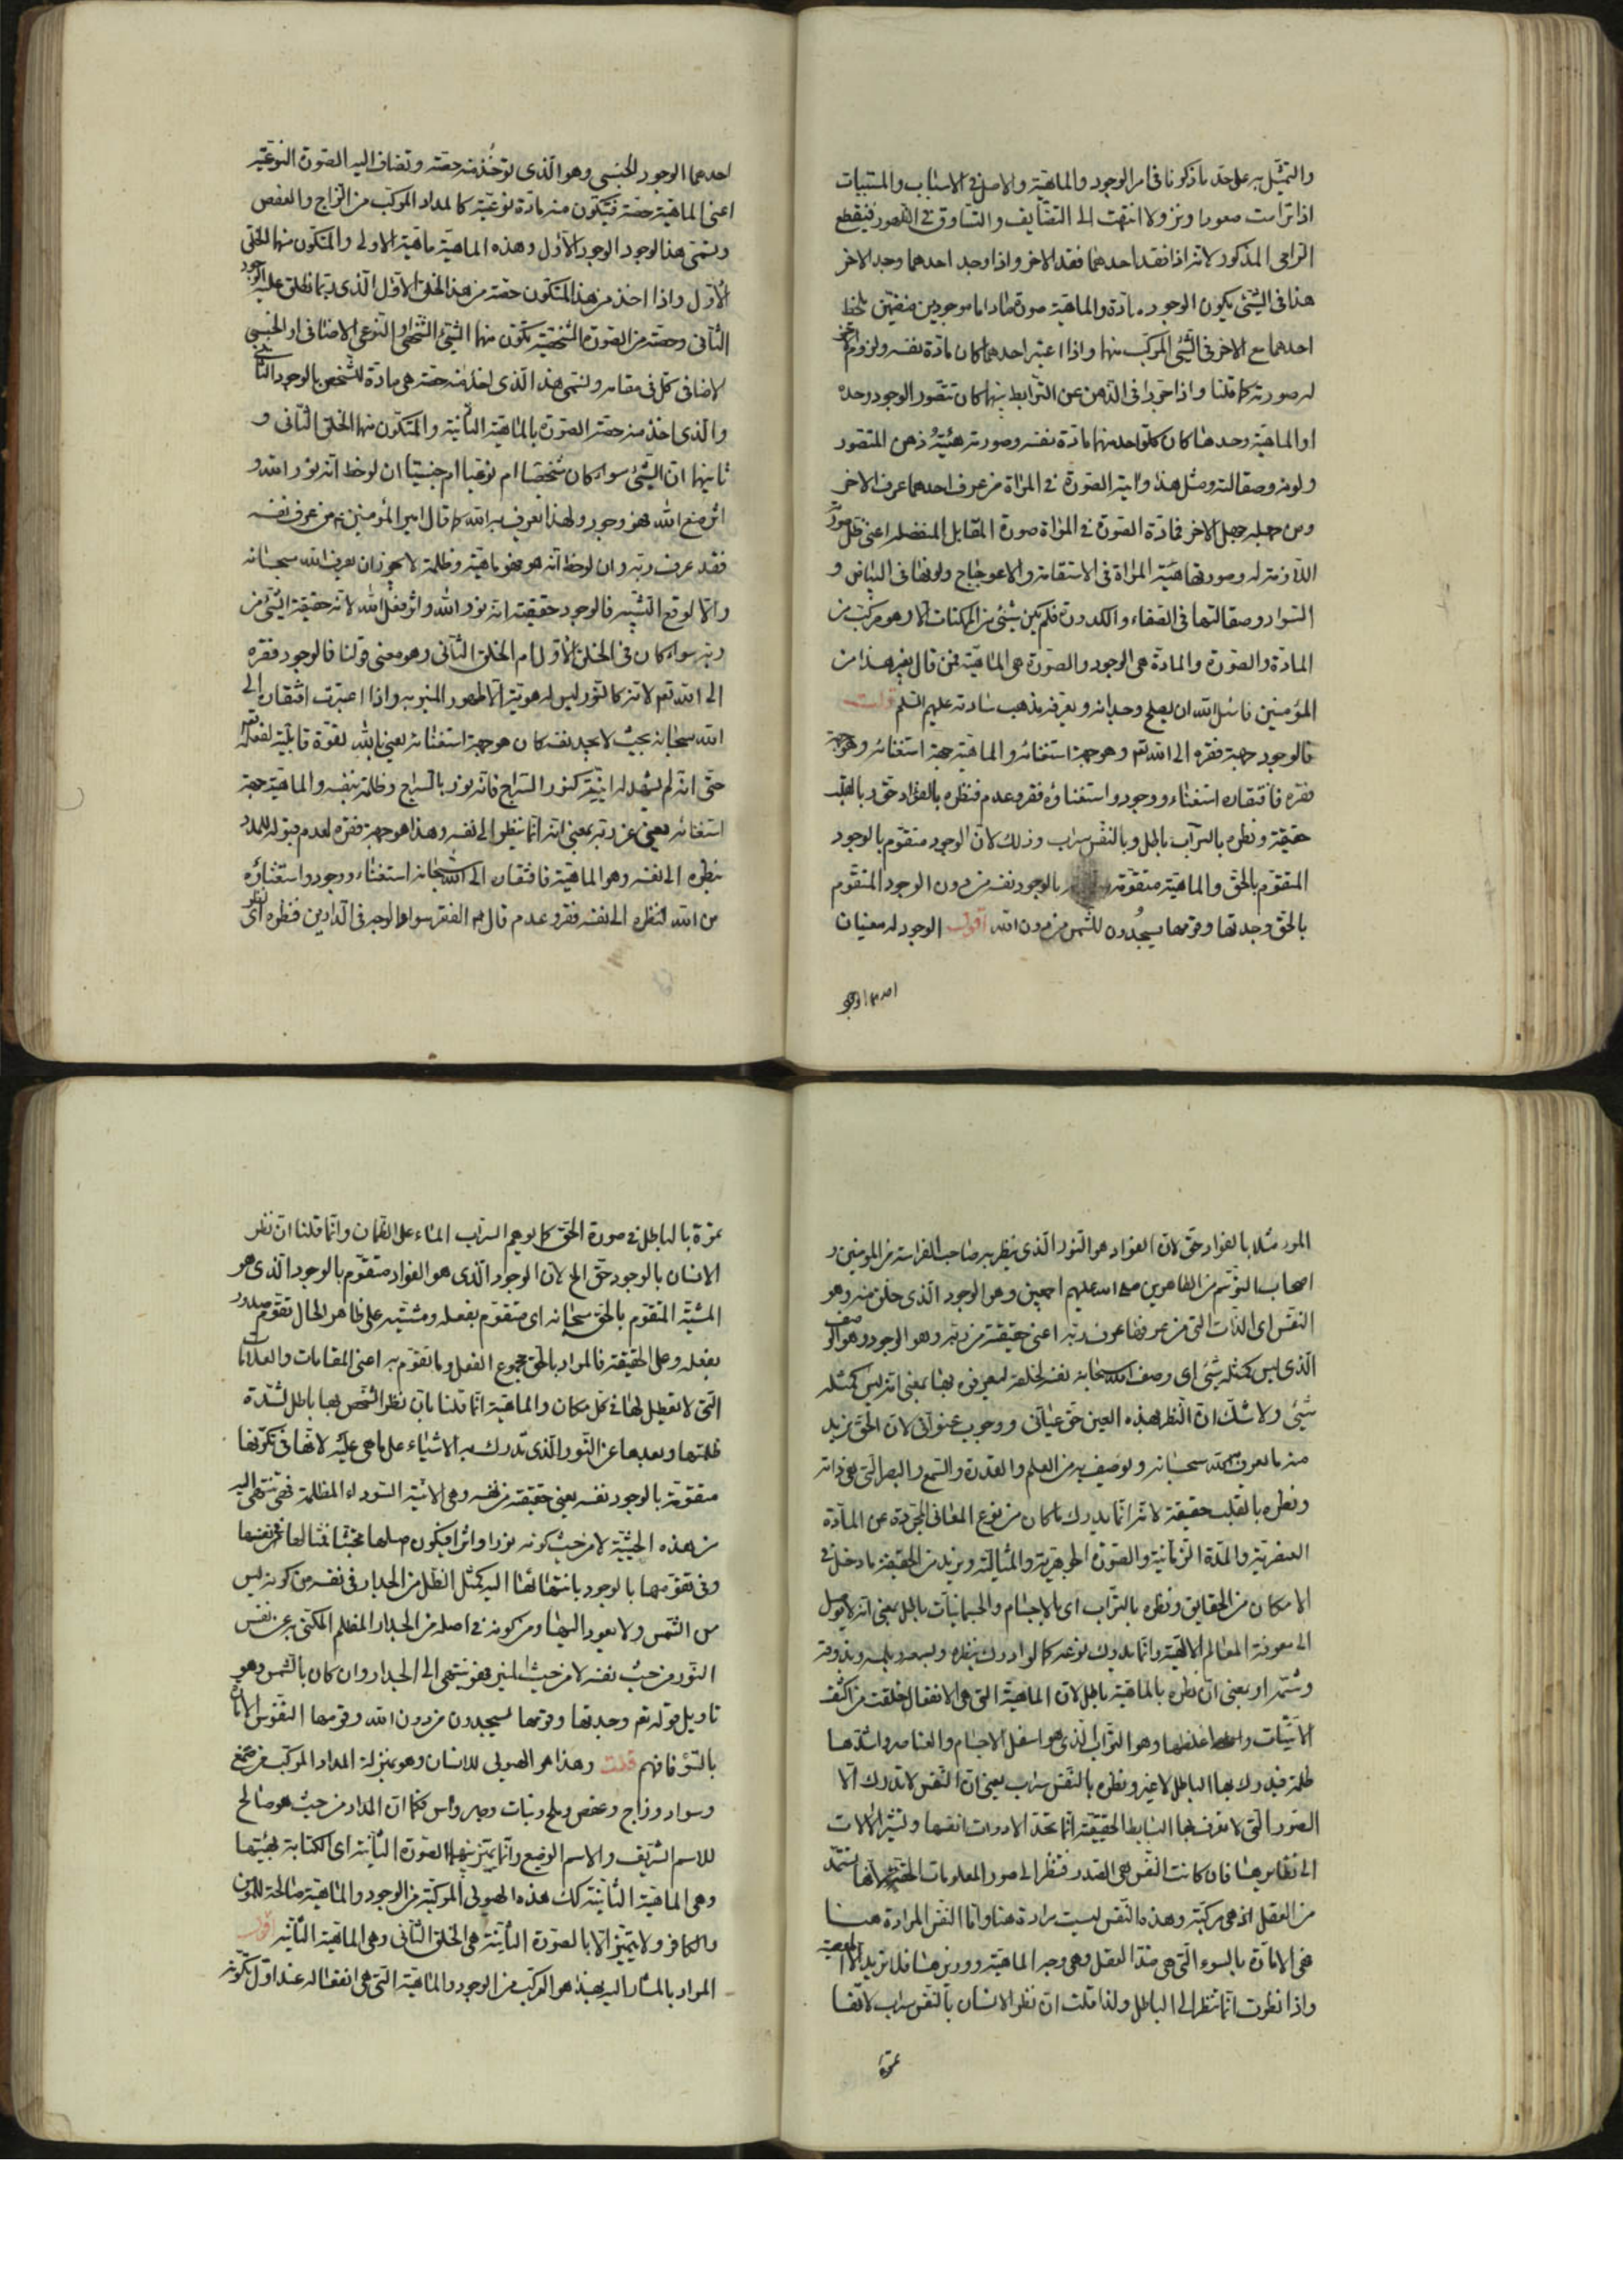 والتمثيل به على حد ما ذكرنا فى امر الوجود والماهية والاصل فى الاسباب والمسببات
اذا ترامت صعودا ونزولا انتهت الى التضايف والتساوق فى الظهور فينقطع
الترامى المذكور لانه اذا فقد احدهما فقد الاخر واذا وجد احدهما وجد الاخر
هذا فى الشئ يكون الوجود مادة والماهية صورة ماداما موجودين منضمين بلحظ
احدهما مع الاخر فى الشئ المركب منهما واذا اعتبر احدهما كان مادة نفسه ولزوم الاخر
له صورته كما قلنا واذا جردا فى الذهن عن الترابط بينهما كان تتصور الوجود وحده
او الماهية وحدها كان كل واحد منهما مادة نفسه وصورته هيئة ذهن المتصور
ولونه وصقالته ومثل هذا واية الصورة فى المراة من عرف احدهما عرف الاخر
ومن جهله جهل الاخر فمادة الصورة فى المراة صورة المقابل المنفصلة اعنى ظل صورته
اللازمة له وصورتها هيئة المراة فى الاستقامة والاعوجاج ولونها فى البياض و
السواد وصقالتها فى الصفاء والكدورة فلم يكن شئ من الممكنات الا وهو مركب من
المادة والصورة والمادة هى الوجود والصورة هى الماهية فمن قال بغير هذا من
المؤمنين فاسئل الله ان يصلح وجدانه ويعرفه مذهب ساداته عليهم السلم قلت
فالوجود جهة فقره الى الله تع وهو جهة استغنائه والماهية جهة استغنائه وهو جهة
فقره فافتقاره استغناء ووجود واستغناؤه فقر وعدم فنظره بالفؤاد حق وبالقلب
حقيقة ونظره بالتراب باطل وبالنفس سراب وذلك لان الوجود متقوم بالوجود
المتقوم بالحق والماهية متقومة بالوجود نفسه من دون الوجود المتقوم
بالحق وجدتها وقومها يسجدون للشمس من دون الله اقول الوجود له معنيان
احدهما الوجود
احدهما الوجود الجنسى وهو الذى تؤخذ منه حصة وتضاف اليه الصورة النوعية
اعنى الماهية حصة فيتكون منه مادة نوعية كالمداد المركب من الزاج والعفص
وتسمى هذا الوجود الوجود الاول وهذه الماهية ماهية الاولى والمتكون منهما الخلق
الاول واذا اخذ من هذا المتكون حصة من هذا الخلق الاول الذى ربما نطلق عليه الوجود
الثانى وحصة من الصورة الشخصية تكون منهما الشئ الشخصى او النوعى الاضافى او الجنسى
الاضافى كل فى مقامه ونسمى هذا الذى اخذ منه حصة هى مادة للشخص بالوجود الثانى
والذى اخذ منه حصة الصورة بالماهية الثانية والمتكون منهما الخلق الثانى و
ثانيهما ان الشئ سواء كان شخصيا ام نوعيا ام جنسيا ان لوحظ انه نور الله و
اثر صنع الله فهو وجود ولهذا يعرف به الله كما قال امير المؤمنين ع من عرف نفسه
فقد عرف ربه وان لوحظ انه هو فهو ماهية وظلمة لا يجوز ان يعرف الله سبحانه
والا لوقع التشبيه فالوجود حقيقة انه نور الله واثر فعل الله لانه حقيقة الشئ من
ربه سواء كان فى الخلق الاول ام الخلق الثانى وهو معنى قولنا فالوجود فقره
الى الله تع لانه كالنور ليس له هوية الا ظهور المنير به واذا اعتبرت افتقاره الى
الله سبحانه بحيث لا يجد نفسه كان هو جهة استغنائه يعنى بالله بقوة قابلية لفعله
حتى انه لم يشهد له انية كنور السراج فانه نور بالسراج وظلمة بنفسه والماهية جهة
استغنائه يعنى عن ربه بمعنى انه انما ينظر الى نفسه وهذا هو جهة فقره لعدم قبوله للمدد
بنظره الى نفسه وهو الماهية فافتقاره الى الله سبحانه استغناء ووجود واستغناؤه
من الله لنظره الى نفسه فقر وعدم قال ع الفقر سواد الوجه فى الدارين فنظره اى
المرء مثلا بالفؤاد حق لان الفؤاد هو النور الذى ينظر به صاحب الفراسة من المومنين و
اصحاب التوسم من الطاهرين صلى الله عليهم اجمعين وهو الوجود الذى خلق منه وهو
النفس اى الذات التى من عرفها عرف ربه اعنى حقيقة من ربه وهو الوجود وهو الوصف
الذى ليس كمثله شئ اى وصف الله سبحانه نفسه لخلقه ليعرفوه بها بمعنى انه ليس كمثله
شئ ولا شك ان النظر بهذه العين حق عيانى ووجوب عنوانى لان الحق نريد
منه ما يعرف الله سبحانه ويوصف به من العلم والقدرة والسمع والبصر التى هى ذاته
ونظره بالقلب حقيقة لانه انما يدرك ما كان من نوع المعانى المجردة عن المادة
العنصرية والمدة الزمانية والصورة الجوهرية والمثالية ونريد من الحقيقة ما دخل فى
الامكان من الحقايق ونظره بالتراب اى بالاجسام والجسمانيات باطل بمعنى انه لا يوصل
الى معرفة المعالم الالهية وانما يدرك نوعه كما لو ادرك بنظره ولبصره ولمسه وبذوقه
وشمه او بمعنى ان نظره بالماهية باطل لان الماهية التى هى الانفعال خلقت من اكثف
الانيات واغلظها وهو التراب الذى هو اسفل الاجسام والعناصر واشدها
ظلمة فيدرك بها الباطل لا غير ونظره بالنفس سراب يعنى ان النفس لا تدرك الا
الصور التى لا تعرف بها البسايط الحقيقة انما تحد الادوات انفسها وتشير الالات
الى نظايرها فان كانت النفس هى الصدر فنظر الى صور المعلومات الحقة لانها تستمد
من العقل اذ هى مركبة وهذه النفس ليست مرادة هنا وانما النفس المرادة هنا
هى الامارة بالسوء التى هى ضد العقل وهى وجه الماهية ووزيرها فلا تريد الا المعصية
واذا نظرت انما تنظر الى الباطل ولذا قلت ان نظر الانسان بالنفس سراب لانها
مموهة
مموهة بالباطل فى صورة الحق كما يوهم السراب الماء على الظمان وانما قلنا ان نظر
الانسان بالوجود حق الخ لان الوجود الذى هو الفؤاد متقوم بالوجود الذى هو
المشية المتقوم بالحق سبحانه اى متقوم بفعله ومشيته على ظاهر الحال تقوم صدور
بفعله وعلى الحقيقة فالمراد بالحق مجموع الفعل وما تقوم به اعنى المقامات والعلامات
التى لا تعطيل لها فى كل مكان والماهية انما قلنا بان نظر الشخص بها باطل لشدة
ظلمتها وبعدها عن النور الذى تدرك به الاشياء على ما هى عليه لانها فى تكونها
متقومة بالوجود نفسه يعنى حقيقة من نفسه وهى الانية السوداء المظلمة فهى تنتهى اليه
من هذه الحيثية لا من حيث كونه نورا واثرا فيكون اصلها مجتثا فمثالها فى نفسها
وفى تقومها بالوجود بانتهائها اليه كمثل الظل من الجدار فى نفسه من كونه ليس
من الشمس ولا يعود اليها ومن كونه فى اصله من الجدار المظلم المكتسى به عن نفس
النور من حيث نفسه لا من حيث المنير فهو ينتهى الى الجدار وان كان بالشمس وهو
تاويل قوله تع وجدتها وقومها يسجدون من دون الله وقومها النفوس الامارة
بالسؤ فافهم قلت وهذا هو الهيولى للانسان وهو بمنزلة المداد المركب من صمغ
وسواد وزاج وعفص وملح ونبات وصبر واس فكما ان المداد من حيث هو صالح
للاسم الشريف والاسم الوضيع وانما يتميز بينهما الصورة الثانية اى الكتابة بهيئتها
وهى الماهية الثانية كك هذه الهيولى المركبة من الوجود والماهية صالحة للمؤمن
والكافر ولا يتميز الا بالصورة الثانية هى الخلق الثانى وهى الماهية الثانية اقول
المراد بالمشار اليه بهذا هو المركب من الوجود والماهية التى هى انفعاله عند اول تكونه